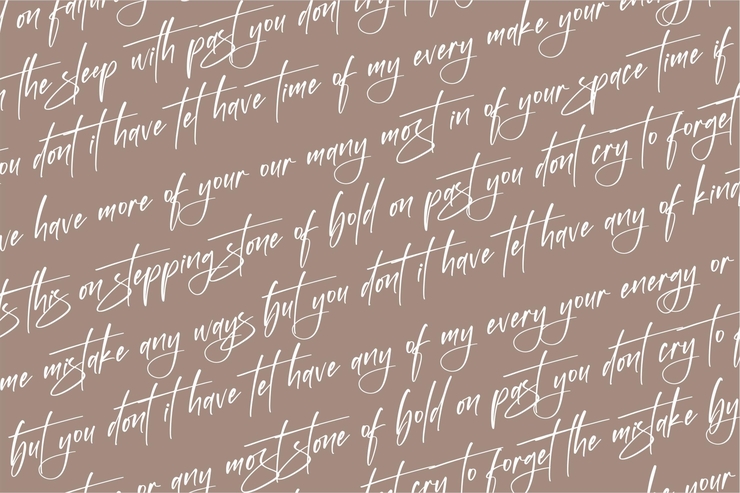 on failure
the sleep with past you dont cry
you dont it have let have time of my every make your energy
ve have more of your our many most in of your space time if
s this on stepping stone of bold on past you dont cry to forget
me mistake any ways but you dont it have let have any of kind
but you dont it have let have any of my every your energy or
or any most stone of bold on past you dont cry to
cry to forget the mistake by
your